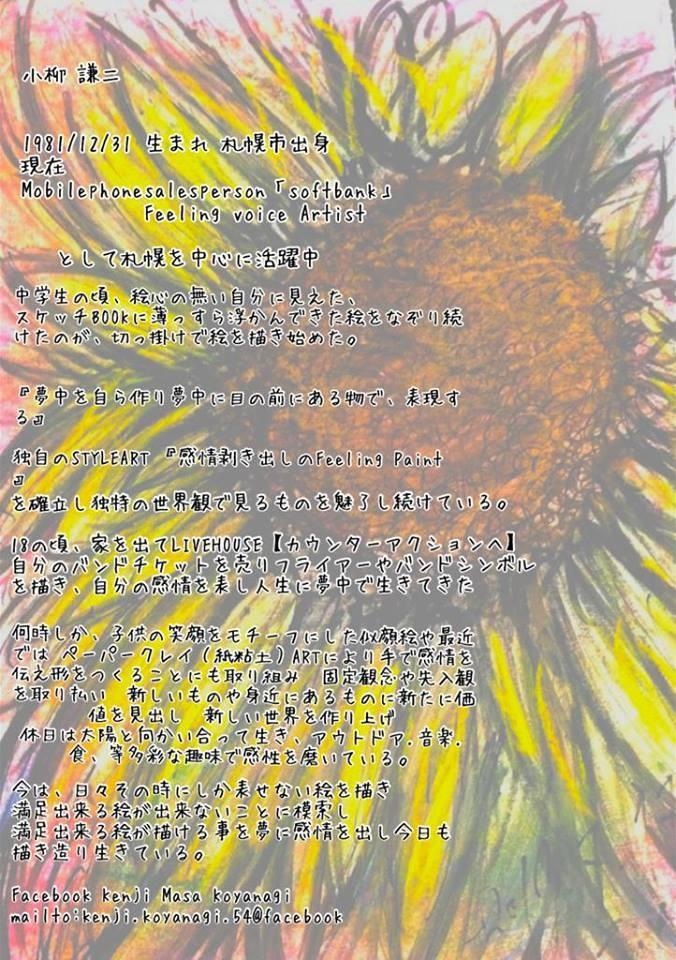 小柳 謙二
1981/12/31 生まれ 札幌市出身
現在
Mobilephonesalesperson「softbank」
Feeling voice Artist
として札幌を中心に活躍中
中学生の頃、絵心の無い自分に見えた、
スケッチBOOKに薄っすら浮かんできた絵をなぞり続
けたのが、切っ掛けで絵を描き始めた。
『夢中を自ら作り夢中に目の前にある物で、表現す
る』
独自のSTYLEART 『感情剥き出しのFeeling Paint
』
を確立し独特の世界観で見るものを魅了し続けている。
18の頃、家を出てLIVEHOUSE【カウンターアクションへ】
自分のバンドチケットを売りフライアーやバンドシンボル
を描き、自分の感情を表し人生に夢中で生きてきた
何時しか、子供の笑顔をモチーフにした似顔絵や最近
では ペーパークレイ(紙粘土)ARTにより手で感情を
伝え形をつくることにも取り組み 固定観念や先入観
を取り払い 新しいものや身近にあるものに新たに価
値を見出し 新しい世界を作り上げ
休日は太陽と向かい合って生き、アウトドア.音楽.
食、等多彩な趣味で感性を磨いている。
今は、日々その時にしか表せない絵を描き
満足出来る絵が出来ないことに模索し
満足出来る絵が描ける事を夢に感情を出し今日も
描き造り生きている。
Facebook kenji Masa koyanagi
mailto:kenji.koyanagi.54@facebook